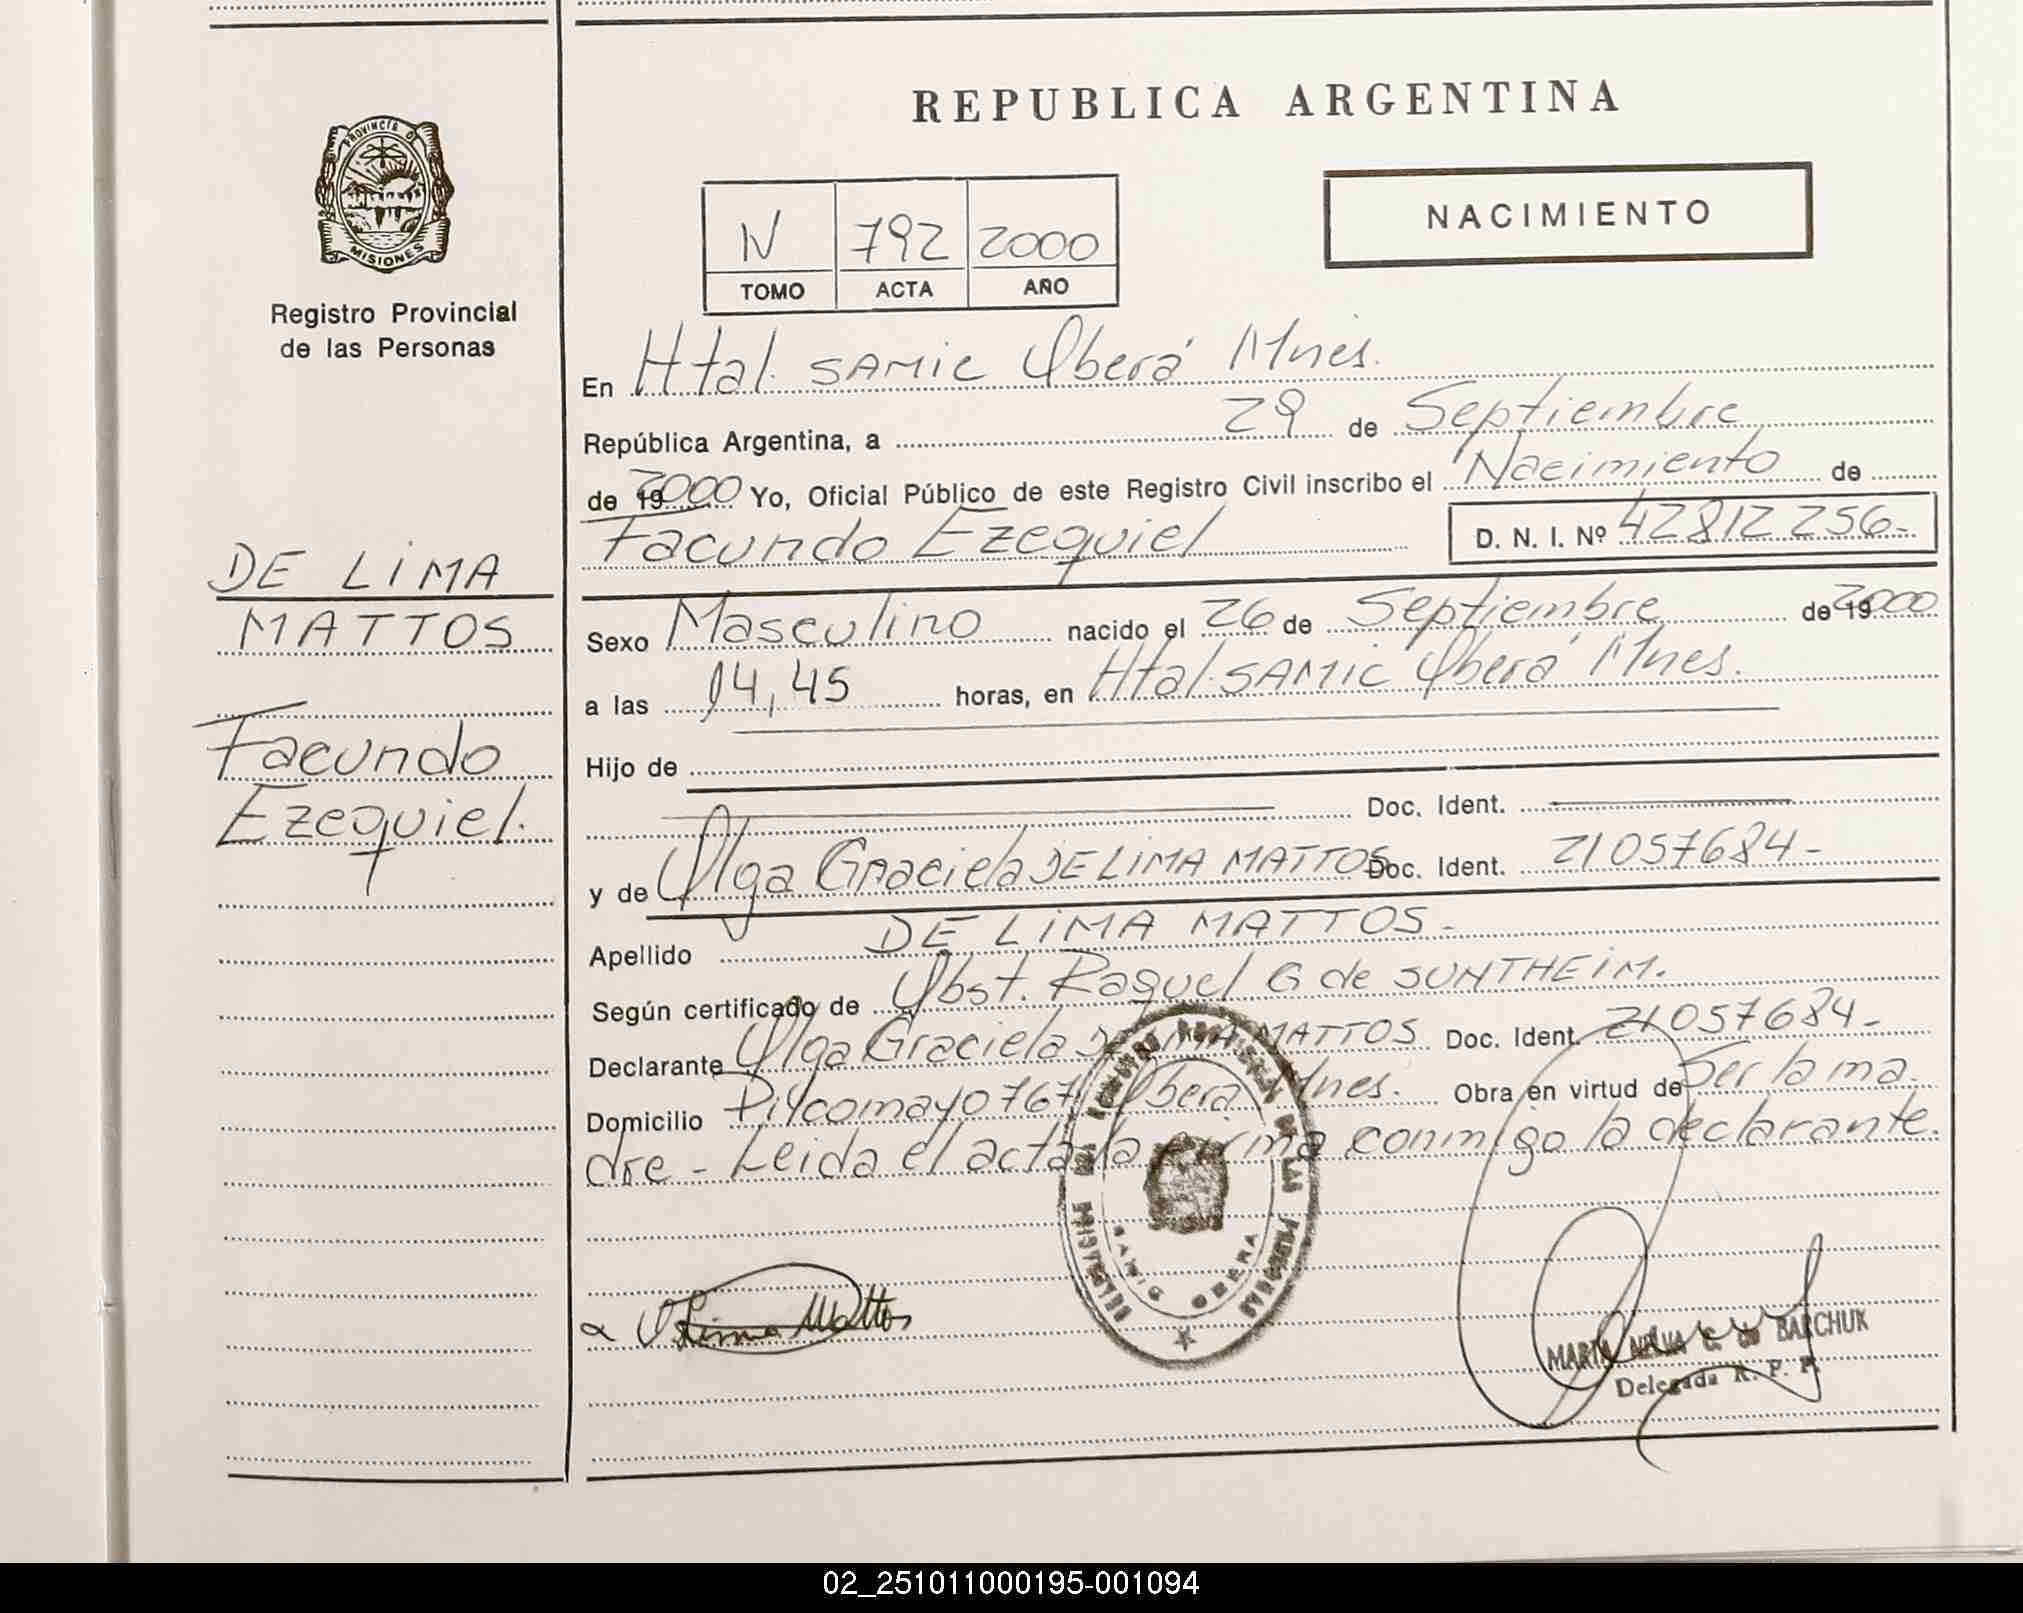 REPUBLICA ARGENTINA
PROVINCIA DE
MISIONES
Registro Provincial
de las Personas
NACIMIENTO
N 792 2000
TOMO ACTA AÑO
En Htal. SAMIC Oberá Mnes.
República Argentina, a 29 de Septiembre
de 19 2000 Yo, Oficial Público de este Registro Civil inscribo el Nacimiento de
Facundo Ezequiel D. N. I. Nº 42812256-
DE LIMA
MATTOS
Facundo
Ezequiel.
Sexo Masculino nacido el 26 de Septiembre de 19 2000
a las 14,45 horas, en Htal. SAMIC Oberá Mnes.
Hijo de
Doc. Ident.
y de Olga Graciela DE LIMA MATTOS Doc. Ident. 21057684-
Apellido DE LIMA MATTOS-
Según certificado de Obst. Raquel G de SUNTHEIM.
Declarante Olga Graciela DE LIMA MATTOS Doc. Ident. 21057684-
Domicilio Pilcomayo 767 Oberá Mnes. Obra en virtud de Ser la ma-
dre - Leida el acta la firma conmigo la declarante.
Lima Mattos
SAMIC OBERA
BARCHUK
Delegada R. P. P.
02_251011000195-001094